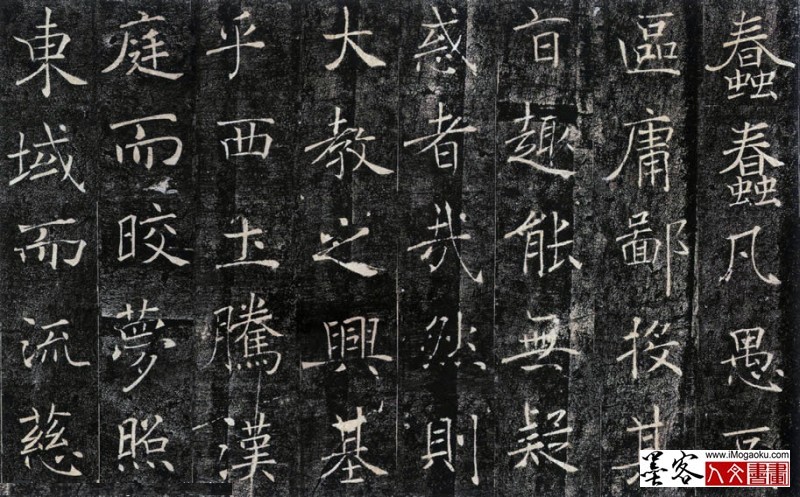 蠢蠢凡愚
區庸鄙投其
旨趣能無疑
惑者哉然則
大教之興基
乎西土騰漢
庭而皎夢照
東域而流慈
墨客
www.iMogaoku.com
人文書畫